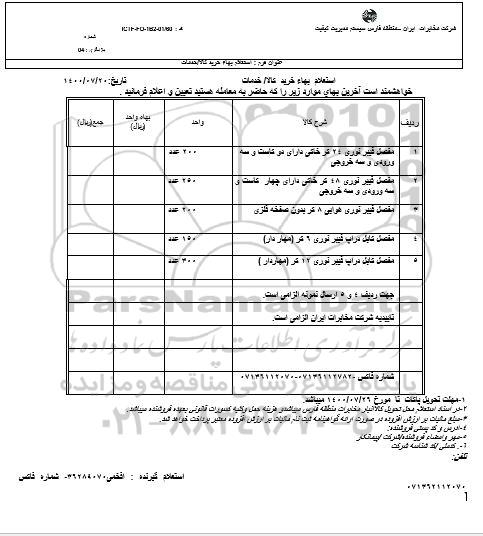 شرکت مخابرات ایران -منطقه فارس سیستم مدیریت کیفیت
ICTF-FO-162-01/60
شماره
بازنگری : 04
عنوان فرم : استعلام بهاء خرید کالا/خدمات
استعلام بهاء خرید کالا/ خدمات
تاریخ:۱۴۰۰/۰۷/۲۰
خواهشمند است آخرین بهای موارد زیر را که حاضر به معامله هستید تعیین و اعلام فرمائید .
ردیف شرح کالا واحد بهاء واحد (ریال) جمع(ریال)
۱ مفصل فیبر نوری ۲٤ کر خاکی دارای دو کاست و سه ورودی و سه خروجی ۲۰۰ عدد
۲ مفصل فیبر نوری ٤۸ کر خاکی دارای چهار کاست و سه ورودی و سه خروجی ۲٥۰ عدد
۳ مفصل فیبر نوری هوایی ۸ کر بدون صفحه فلزی ۲۰۰ عدد
٤ مفصل کابل دراپ فیبر نوری ٦ کر (مهار دار) ۱٥۰ عدد
٥ مفصل کابل دراپ فیبر نوری ۱۲ کر (مهاردار ) ۳۰۰ عدد
جهت ردیف ٤ و ٥ ارسال نمونه الزامی است.
تاییدیه شرکت مخابرات ایران الزامی است.
ParsNamadData
مرکز فرآوری اطلاعات پارس نماد داده ها
شماره فاکس :۰۷۱۳۶۱۱۲۰۷۰-۰۷۱۳۶۱۱۲۷۸۲
پایگاه اطلاع رسانی مناقصه و مزایده
۱-مهلت تحویل پاکات تا مورخ ۱۴۰۰/۰۷/۲۶ میباشد.
۲-در اسناد استعلام محل تحویل کالا/انبار مخابرات منطقه فارس میباشدو هزینه حمل وکلیه کسورات قانونی بعهده فروشنده میباشد.
۳-مبلغ مالیات بر ارزش افزوده در صورت ارائه گواهینامه ثبت نام مالیات بر ارزش افزوده معتبر پرداخت خواهد شد.
۴-آدرس و کد پستی فروشنده:
۵-مهر وامضاء فروشنده/شرکت /پیمانکار
۶-. کدملی /شناسه شرکت
تلفن:
استعلام گیرنده : افخمی۳۶۲۸۹۰۷۰- شماره فاکس
۰۷۱۳۶۲۱۱۲۰۷۰
1